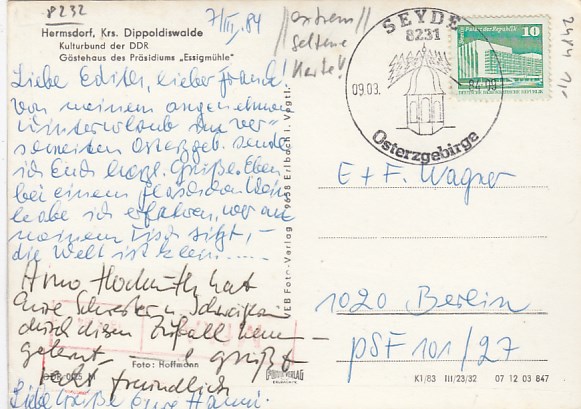 8232
7/III, 84
//extrem//
seltene
Karte!
Hermsdorf, Krs. Dippoldiswalde
Kulturbund der DDR
Gästehaus des Präsidiums „Essigmühle"
SEYDE
8231
09.03.
Osterzgebirge
10
Palast der Republik Berlin
Liebe Edith, lieber Frands!
Von meinem angenehmen
Winterurlaub im ver-
schneiten Osterzgeb. sende
ich Euch herzl. Grüße. Eben
bei einem Glas
habe ich erfahren, wer an
meinem Tisch sitzt, –
die Welt ist klein.....
Arno hat
Eure Schwester u. Schwägerin
durch diesen Zufall kennen-
gelernt – grüßt
recht freundlich
Liebe Grüße Eure Hanni.
E + F. Wagner
1020 Berlin
PSF 101/27
VEB Foto-Verlag 9658 Erlbach i. Vogtl.
Foto: Hoffmann
K1/83 III/23/32 07 12 03 847